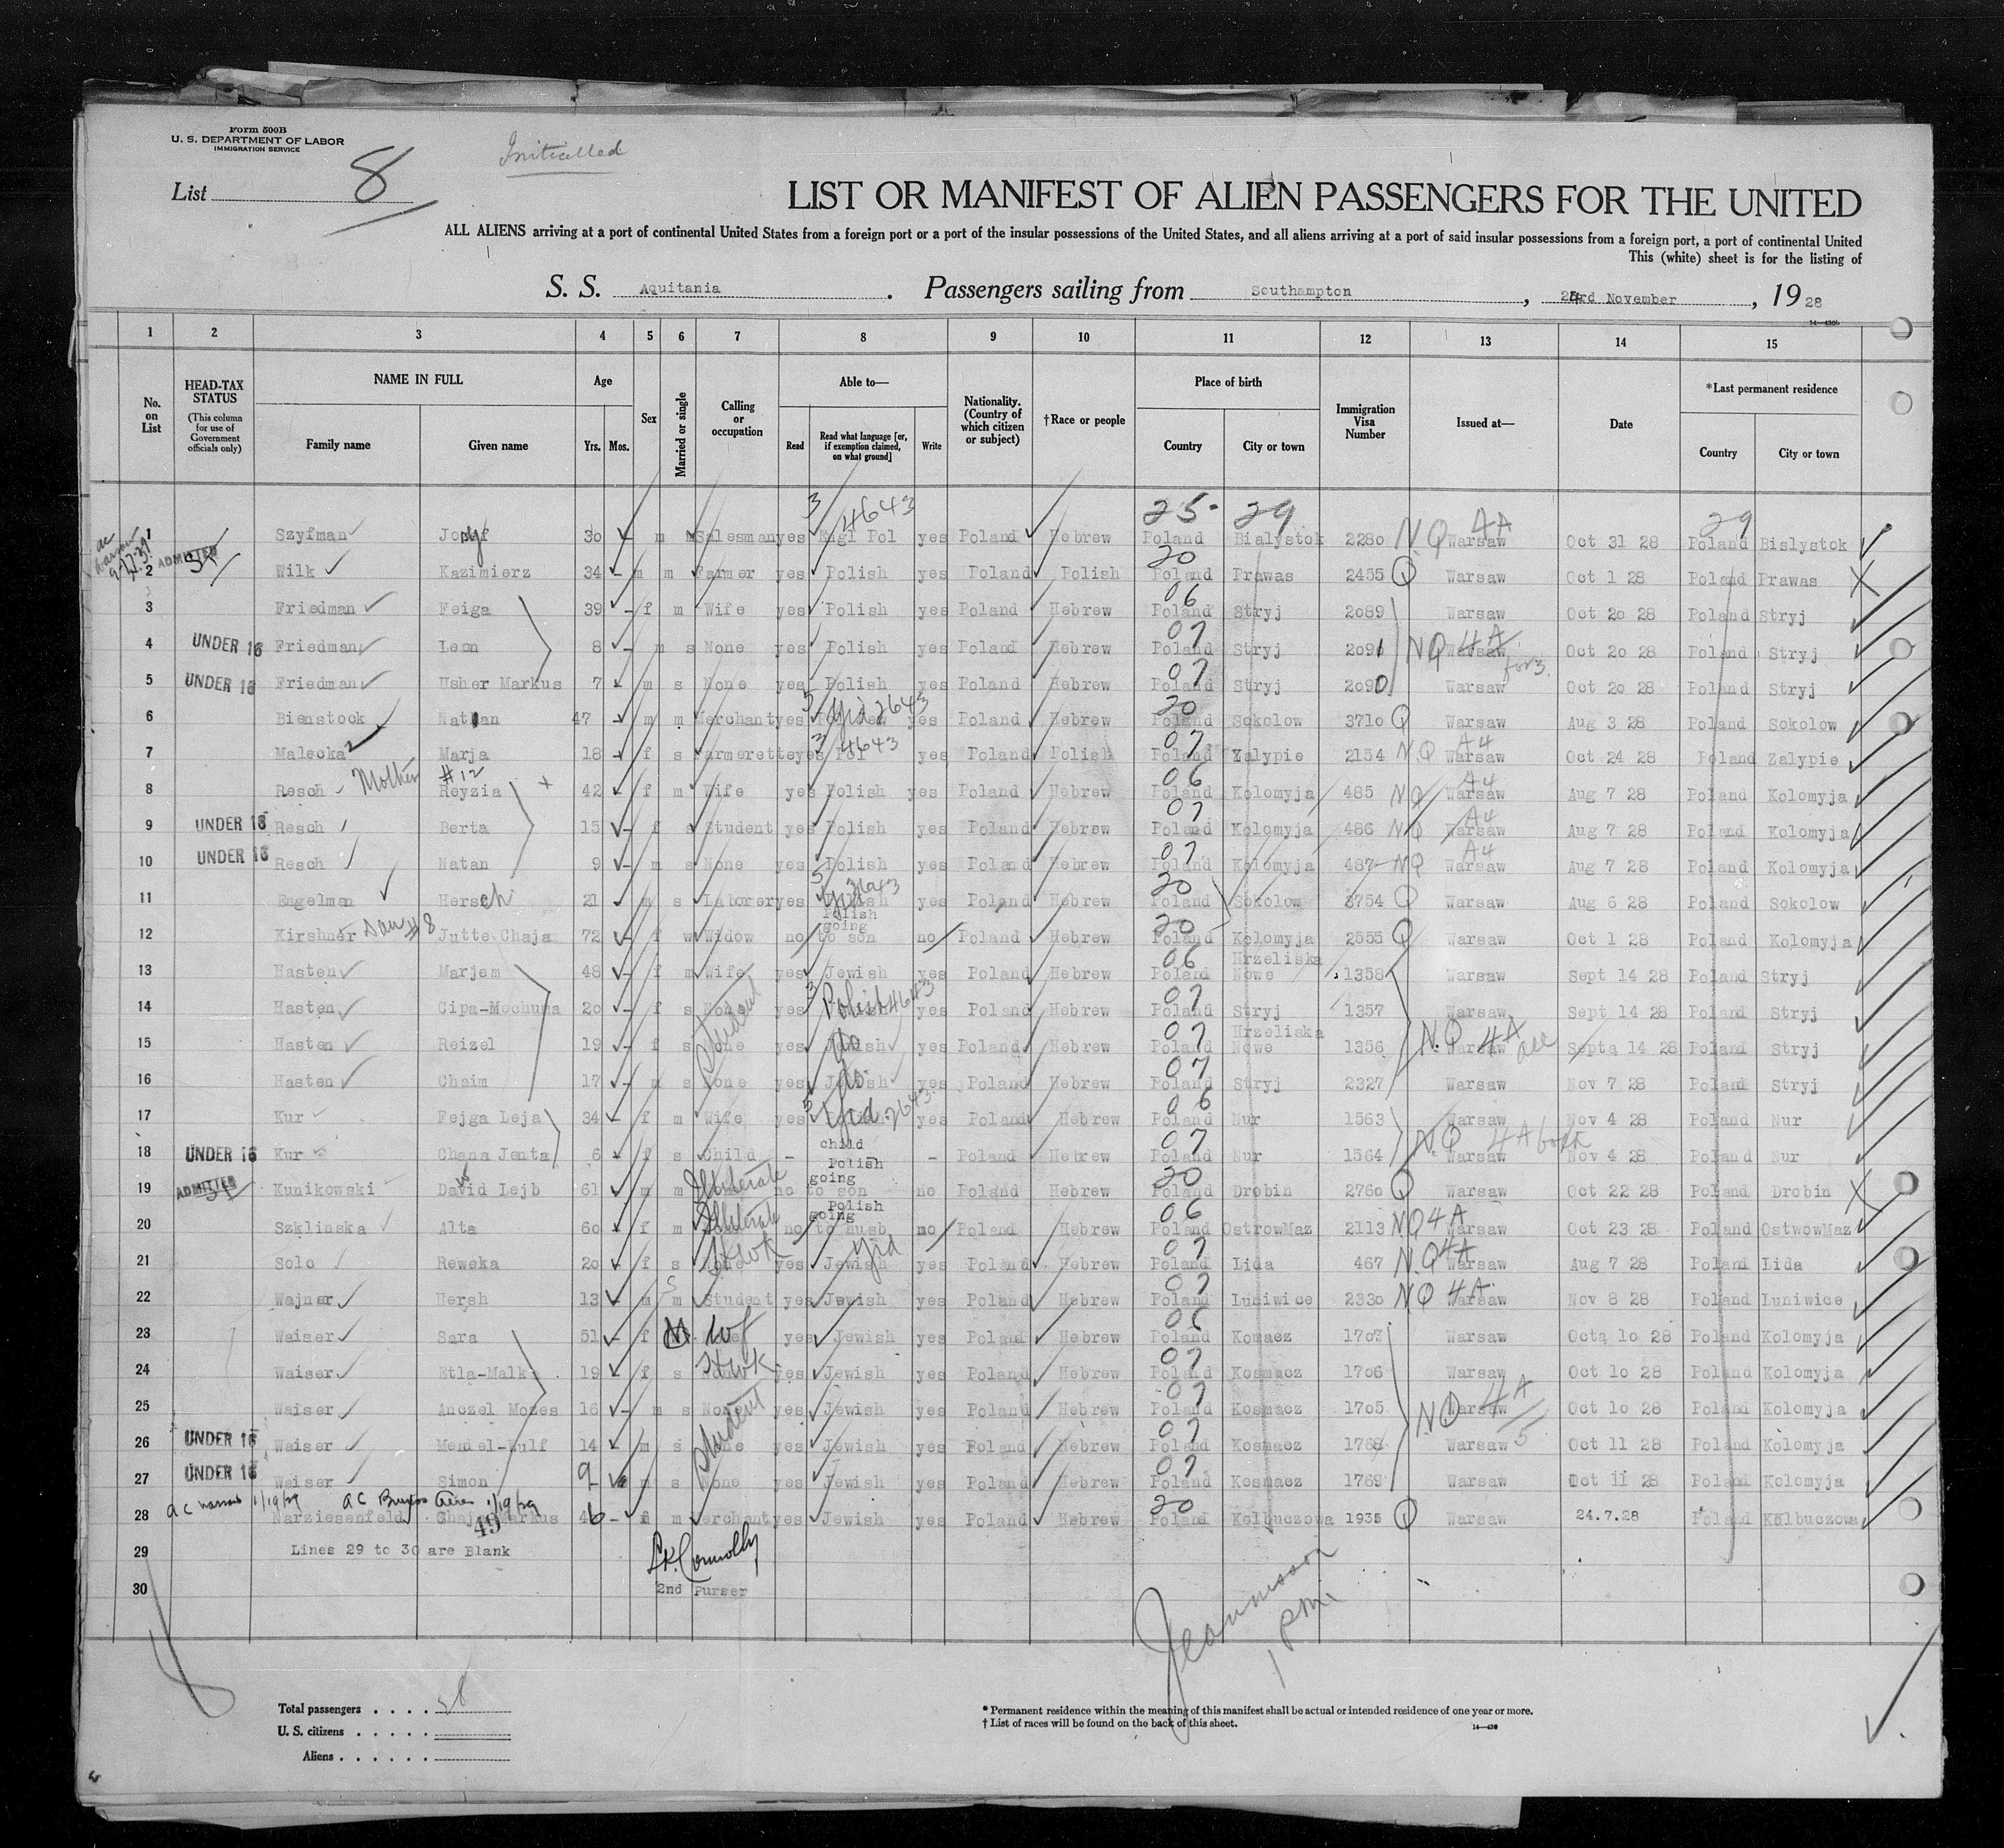 Form 500B
U. S. DEPARTMENT OF LABOR
IMMIGRATION SERVICE
Initialled
List 8
LIST OR MANIFEST OF ALIEN PASSENGERS FOR THE UNITED
ALL ALIENS arriving at a port of continental United States from a foreign port or a port of the insular possessions of the United States, and all aliens arriving at a port of said insular possessions from a foreign port, a port of continental United
This (white) sheet is for the listing of
S. S. Aquitania. Passengers sailing from Southampton, November, 1928
14—430b
1 2 3 4 5 6 7 8 9 10 11 12 13 14 15
No. on List
HEAD-TAX STATUS (This column for use of Government officials only)
NAME IN FULL Family name Given name
Age Yrs. Mos.
Sex
Married or single
Calling or occupation
Able to— Read Read what language [or, if exemption claimed, on what ground] Write
Nationality. (Country of which citizen or subject)
†Race or people
Place of birth Country City or town
Immigration Visa Number
Issued at—
Date
*Last permanent residence Country City or town
3 4643 25- 29 4A 29
1 Szyfman 30 m m Salesman yes Engl Pol yes Poland Hebrew Poland Bialystok 2280 NQ Warsaw Oct 31 28 Poland Bislystok
20
2 ADMITTED Wilk Kazimierz 34 - m m Farmer yes Polish yes Poland Polish Poland Prawas 2455 Q Warsaw Oct 1 28 Poland Prawas
06
3 Friedman Feiga 39 - f m Wife yes Polish yes Poland Hebrew Poland Stryj 2089 Warsaw Oct 20 28 Poland Stryj
07
4 UNDER 16 Friedman Leon 8 - m s None yes Polish yes Poland Hebrew Poland Stryj 2091 NQ 4A Warsaw Oct 20 28 Poland Stryj
07 for 3
5 UNDER 16 Friedman Usher Markus 7 - m s None yes Polish yes Poland Hebrew Poland Stryj 2090 Warsaw Oct 20 28 Poland Stryj
5 Yid 2643 20
6 Bienstock Natan 47 - m m Merchant yes yes Poland Hebrew Poland Sokolow 3710 Q Warsaw Aug 3 28 Poland Sokolow
3 4643 07 A4
7 Malecka Marja 18 - f s Farmerette yes Pol yes Poland Polish Poland Zalypie 2154 NQ Warsaw Oct 24 28 Poland Zalypie
Mother #12 06 A4
8 Resch Reyzia 42 - f m Wife yes Polish yes Poland Hebrew Poland Kolomyja 485 NQ Warsaw Aug 7 28 Poland Kolomyja
07 A4
9 UNDER 16 Resch Berta 15 - f s Student yes Polish yes Poland Hebrew Poland Kolomyja 486 NQ Warsaw Aug 7 28 Poland Kolomyja
07 A4
10 UNDER 16 Resch Natan 9 - m s None yes Polish yes Poland Hebrew Poland Kolomyja 487 NQ Warsaw Aug 7 28 Poland Kolomyja
5 2643 20
11 Engelman Hersch 21 - m s Laborer yes Yid yes Poland Hebrew Poland Sokolow 3754 Q Warsaw Aug 6 28 Poland Sokolow
Polish going 20
12 Kirshner #8 Jutte Chaja 72 - f w Widow no to son no Poland Hebrew Poland Kolomyja 2555 Q Warsaw Oct 1 28 Poland Kolomyja
06 Hrzeliska
13 Hasten Marjem 48 - f m Wife yes Jewish yes Poland Hebrew Poland Nowe 1358 Warsaw Sept 14 28 Poland Stryj
3 4643 07
14 Hasten Cipa-Mechuma 20 - f s None yes Polish yes Poland Hebrew Poland Stryj 1357 Warsaw Sept 14 28 Poland Stryj
Student 07 Hrzeliska
15 Hasten Reizel 19 - f s None yes Jewish do yes Poland Hebrew Poland Nowe 1356 NQ 4A all Warsaw Septa 14 28 Poland Stryj
07
16 Hasten Chaim 17 - m s None yes Jewish do yes Poland Hebrew Poland Stryj 2327 Warsaw Nov 7 28 Poland Stryj
5 2643 06
17 Kur Fejga Leja 34 - f m Wife yes Yid yes Poland Hebrew Poland Nur 1563 Warsaw Nov 4 28 Poland Nur
child 07
18 UNDER 16 Kur Chana Jenta 6 - f s Child - - - Poland Hebrew Poland Nur 1564 NQ 4A both Warsaw Nov 4 28 Poland Nur
Polish going 20
19 ADMITTED Kunikowski David Lejb 61 - m m Illiterate no to son no Poland Hebrew Poland Drobin 2760 Q Warsaw Oct 22 28 Poland Drobin
Polish going 06
20 Szklinska Alta 60 - f m Illiterate no to husb no Poland Hebrew Poland OstrowMaz 2113 NQ 4A Warsaw Oct 23 28 Poland OstwowMaz
07
21 Solo Reweka 20 - f s Hswk yes Jewish Yid yes Poland Hebrew Poland Lida 467 NQ 4A Warsaw Aug 7 28 Poland Lida
S 07
22 Wajner Hersh 13 - m m Student yes Jewish yes Poland Hebrew Poland Luniwice 2330 NQ 4A Warsaw Nov 8 28 Poland Luniwice
06
23 Waiser Sara 51 - f M Wf yes Jewish yes Poland Hebrew Poland Komacz 1707 Warsaw Octa 10 28 Poland Kolomyja
07
24 Waiser Etla-Malka 19 - f s Hswk yes Jewish yes Poland Hebrew Poland Kosmacz 1706 Warsaw Oct 10 28 Poland Kolomyja
07
25 Waiser Anczel Moses 16 - m s None yes Jewish yes Poland Hebrew Poland Kosmacz 1705 NQ 4A 5 Warsaw Oct 10 28 Poland Kolomyja
Student 07
26 UNDER 16 Waiser Mendel-Wulf 14 - m s None yes Jewish yes Poland Hebrew Poland Kosmacz 1768 Warsaw Oct 11 28 Poland Kolomyja
07
27 UNDER 16 Waiser Simon 9 - m s None yes Jewish yes Poland Hebrew Poland Kosmacz 1769 Warsaw Oct 11 28 Poland Kolomyja
1/19/29 AC Buenos Aires 1/19/29 20
28 Narziesenfeld Markus 49 46 - m Merchant yes Jewish yes Poland Hebrew Poland Kolbuczowa 1935 Q Warsaw 24.7.28 Poland Kolbuczowa
29 Lines 29 to 30 are Blank
Connolly
30 2nd Purser
1 pm.
Total passengers . . . . 28
U. S. citizens . . . . .
Aliens . . . . . .
* Permanent residence within the meaning of this manifest shall be actual or intended residence of one year or more.
† List of races will be found on the back of this sheet.
14—430